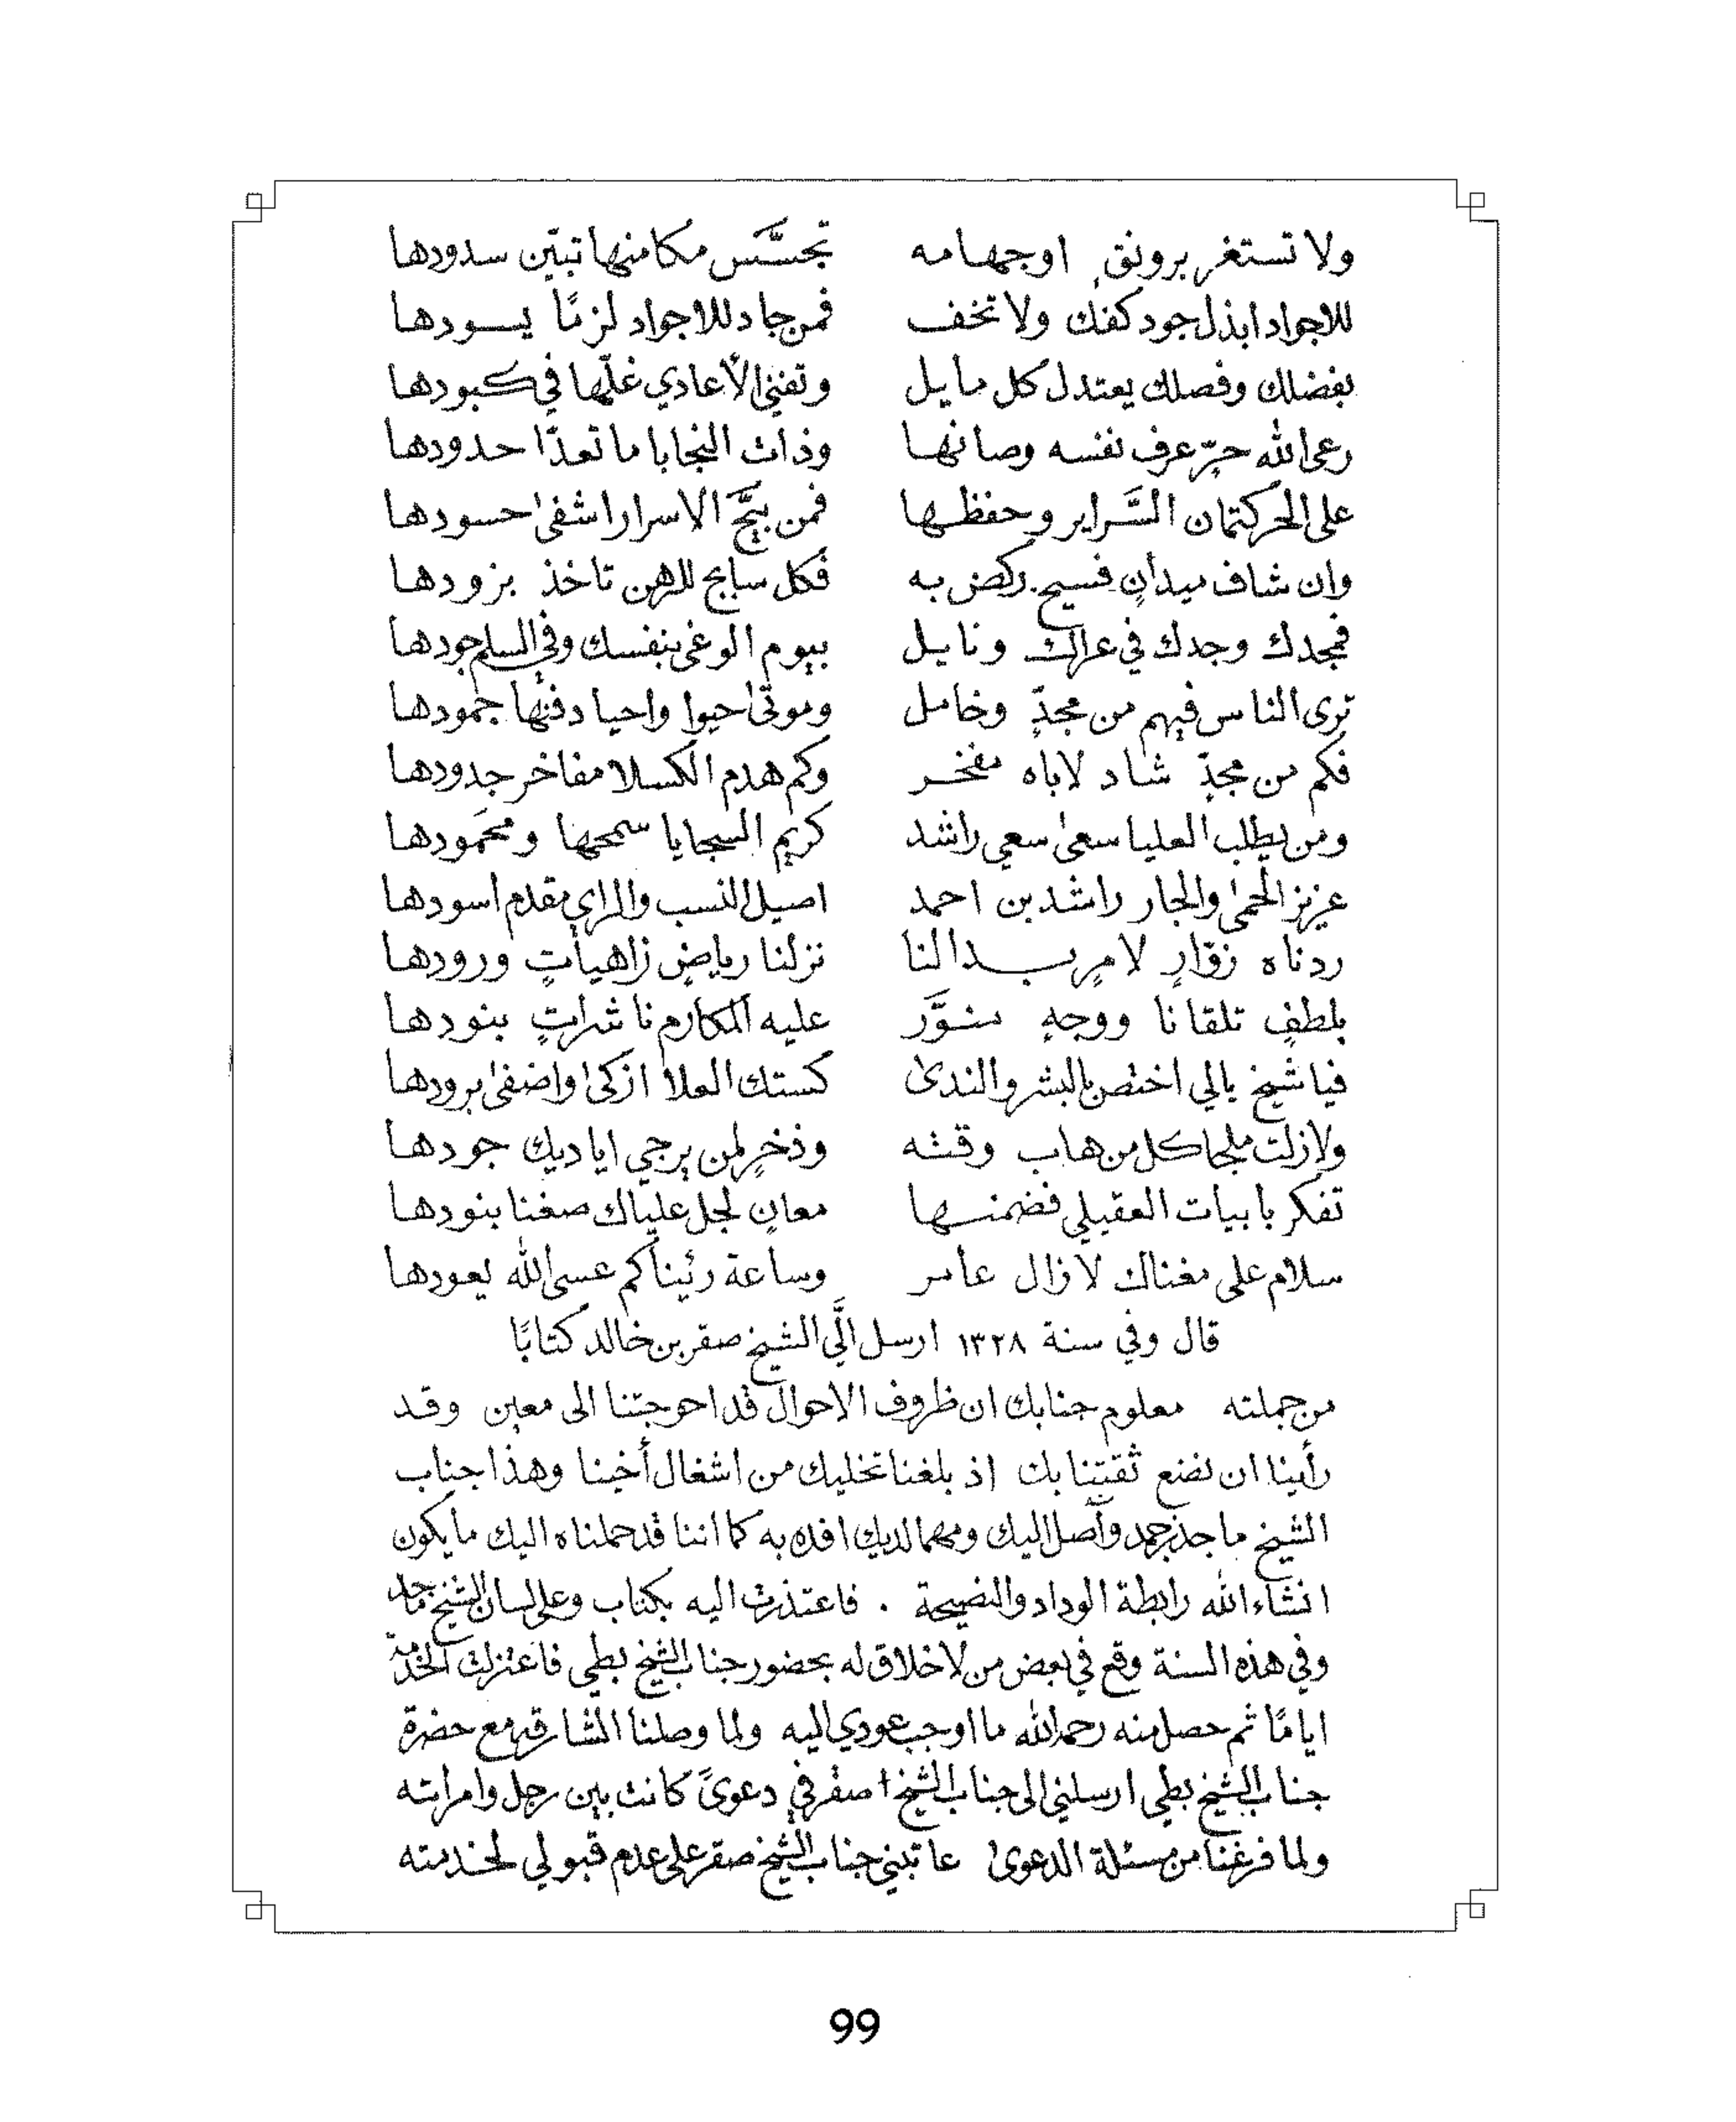 ولا تستغر برونقٍ اوجهامه تجسَّس مكامنها تبيّن سدودها
للاجواد ابذل جود كفك ولا تخف فمن جاد للاجواد لزمًا يسودها
بفضلك وفصلك يعتدل كل مايل وتفنى الأعادي غلّها في كبودها
رعى الله حرٍّ عرف نفسه وصانها وذات النجابا ما تعدّا حدودها
على الحر كتمان السَّراير وحفظها فمن بيَّح الاسرار اشفى حسودها
وان شاف ميدانٍ فسيح ركض به فكل سابح للرهن تاخذ بزودها
فمجدك وجدك في عراك ونايل بيوم الوغى بنفسك وفي السلم جودها
ترى الناس فيهم من مجدٍّ وخامل وموتى احيوا واحيا دفنها جمودها
فكم من مجدٍّ شاد لاباه مفخر وكم هدم الكسلا مفاخر جدودها
ومن يطلب العليا سعى سعي راشد كريم السجايا سمحها ومحمودها
عزيز الحمى والجار راشد بن احمد اصيل النسب والراي مقدم أسودها
ردناه زوّارٍ لامرٍ بدا لنا نزلنا رياضٍ زاهياتٍ ورودها
بلطفٍ تلقانا ووجهٍ منوَّر عليه المكارم ناشراتٍ بنودها
فيا شيخ يالي اختص بالبشر والندى كستك العلا ازكى واضفى برودها
ولازلت ملجا كل من هاب وقته وذخرٍ لمن يرجي اياديك جودها
تفكر بابيات العقيلي فضمنها معانٍ لجل علياك صغنا بنودها
سلام على مغناك لازال عامر وساعة رئيناكم عسى الله يعودها
قال وفي سنة ١٣٢٨ ارسل الَّي الشيخ صقر بن خالد كتابًا
من جملته معلوم جنابك ان ظروف الاحوال قد احوجتنا الى معين وقد
رأينا ان نضع ثقتنا بك اذ بلغنا تخليك من اشغال أخينا وهذا جناب
الشيخ ماجد واصل اليك ومهما لديك افده به كما اننا قد حملناه اليك ما يكون
انشاء الله رابطة الوداد والنصيحة . فاعتذرت اليه بكتاب وعلى لسان الشيخ ماجد
وفي هذه السنة وقع في بعض من لا خلاق له بحضور جناب الشيخ بطي فاعتزلت الخدمة
ايامًا ثم حصل منه رحمه الله ما اوجب عودي اليه ولما وصلنا الشارقه مع حضرة
جناب الشيخ بطي ارسلني الى جناب الشيخ صقر في دعوىً كانت بين رجل وامراته
ولما فرغنا من مسئلة الدعوى عاتبني جناب الشيخ صقر على عدم قبولي لخدمته
99